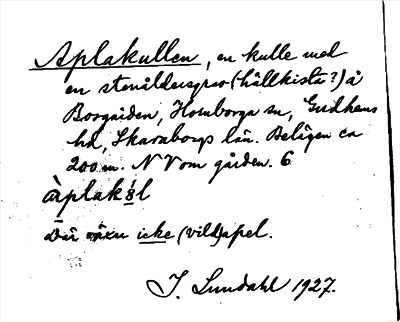 Aplakullen, en kulle med
en stenåldersgrav (hällkista?) å
Borgården, Hornborga sn, Gudhems
hd, Skaraborgs län. Belägen ca
200 m. NV om gården. 6
àplakl
Där växer icke (vild)apel.
J. Lundahl 1927.